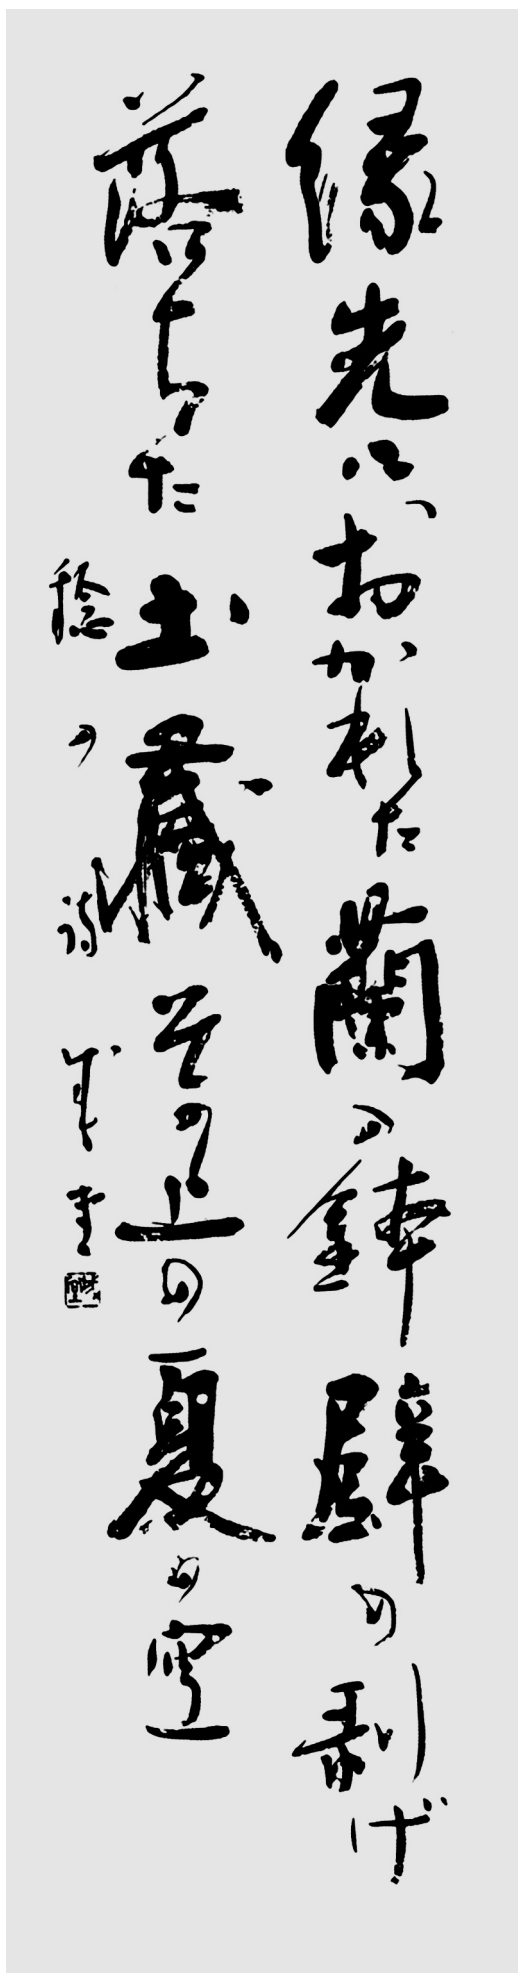 縁先におかれた蘭の鉢壁の剥げ
落ちた土蔵その上の夏の空
稔の詩 成堂